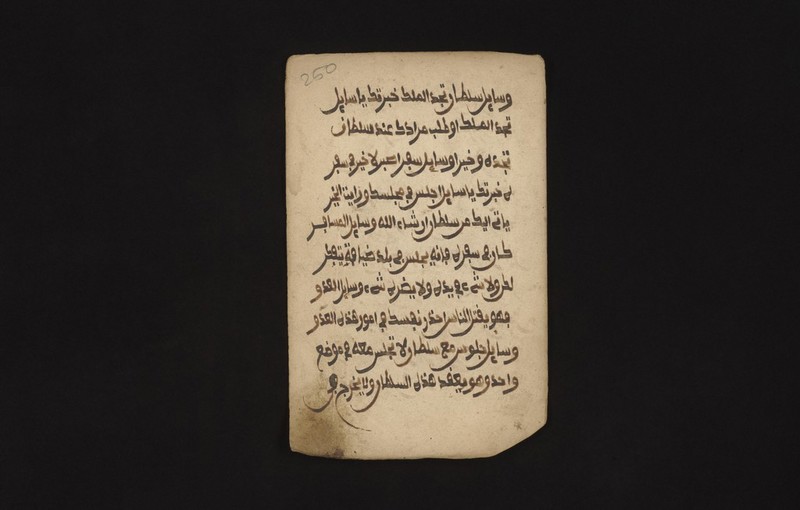 250
وسايل سلطان تجد الملك خبرتك يا سايل
تجد الملك اوطلب مرادك عند سلطان
تجده وخيرا وسايل سفر اصبر لا خير في سفر
يا سايل اجلس في مجلسك ورايت الخير
ياتي اليك من سلطان ان شاء الله وسايل المسافر
كان في سفره فانه يجلس في بلد
ولا شيء في يده ولا يضره شيء وسايل العدو
فهو يقتل الناس احذر نفسك في امور هذه العدو
وسايل جلوس مع سلطان لا تجلس معه في موضع
واحد وهو هذه السلطان ولا يخرج